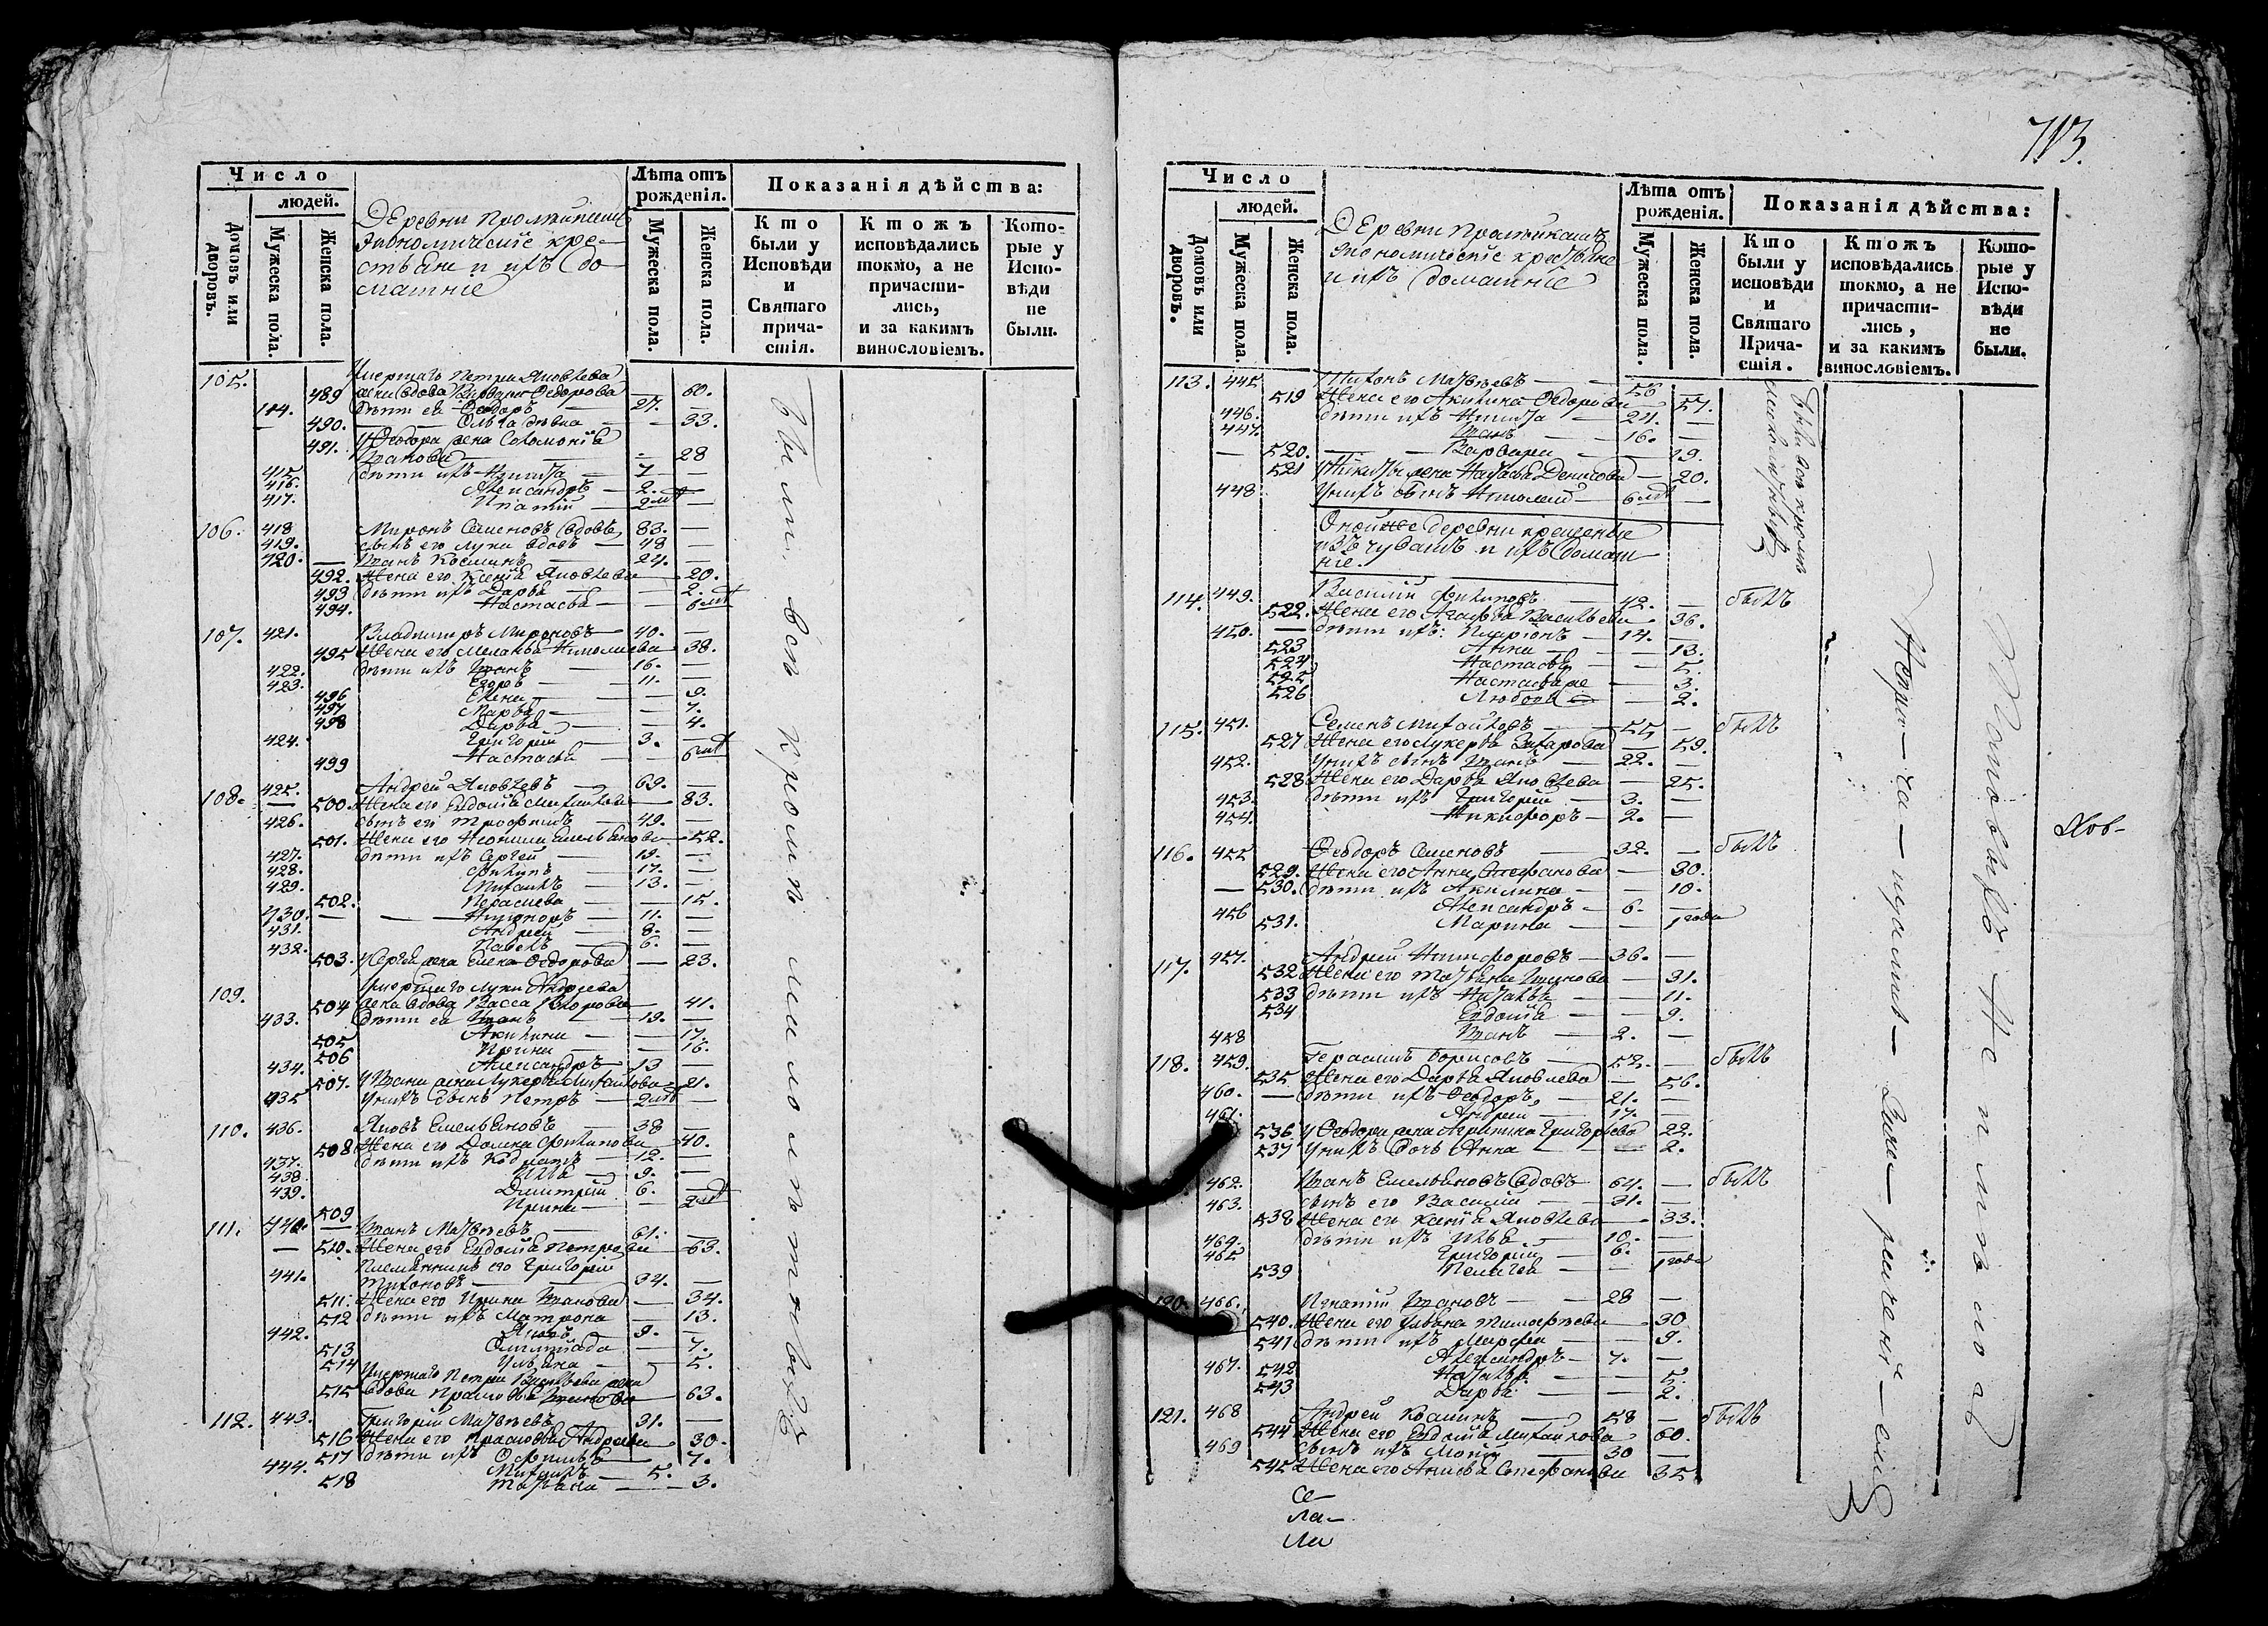 713.
Число
людей.
Домовъ или дворовъ.
Мужеска пола.
Женска пола.
Деревни
экономическіе кре-
стьяне и ихъ до-
машніе
Лѣта отъ рожденія.
Мужеска пола.
Женска пола.
Показанія дѣйства:
Кто были у Исповѣди и Святаго прича-стія.
Ктожъ исповѣдались токмо, а не причасти-лись, и за какимъ винословіемъ.
Кото-рые у Испо-вѣди не были.
105. Умершаго Петра Яковлева
489 жена вдова Варвара Ѳедорова — 60.
414. дѣти ея Ѳедоръ — 27. —
490. Ольга дѣвка — — 33.
491. У Ѳедора жена Соломонія
Иванова — — 28
415. дѣти ихъ Никита — 7 —
416. Александръ — 2. —
417. Ипатій —
106. 418 Миронъ Семеновъ вдовъ 83. —
419. сынъ его Лука вдовъ — 48 —
420. — Иванъ Косминъ 24. —
492. Жена его Ксенія Яковлева — 20.
493 дѣти ихъ Дарья — — 2.
494. Настасья — —
107. 421. Владимиръ Мироновъ — 40. —
495 Жена его Меланья Николаева — 38.
422. дѣти ихъ Иванъ — 16. —
423. Егоръ — 11. —
496 Елена — — 9.
497 Марья — — 7.
498 Дарья — — 4.
424. Григорій — 3. —
499 Настасья —
108. 425. Андрей Яковлевъ — 69. —
— 500. Жена его Евдокія Михайлова — 83.
426. сынъ его Трофимъ — 49. —
501. Жена его Неонила Емельянова — 52.
427. дѣти ихъ Сергей — 19. —
428. Филипъ — 17. —
429. Михаилъ — 13. —
502. — 15.
430. — Никаноръ — 11. —
431. Андрей — 8. —
432. Павелъ — 6. —
503. У Сергея жена Елена Ѳедорова — 23.
109. Умершаго Луки Андреева
504 жена вдова Васса — 41.
433. дѣти ея Иванъ — 19. —
505 Акилина — — 17.
506 Ирина — — 16.
434. Александръ — 13 —
507. У Ивана жена Лукерья Михайлова — 21.
435 У нихъ сынъ Петръ — —
110. 436. Яковъ Емельяновъ — 38 —
508 Жена его Домна Филипова — 40.
437. дѣти ихъ Кодратъ — 12. —
438 Илья — 9. —
439. Димитрій 6. —
509 Ирина —
111. 440. Иванъ Матвѣевъ — 61. —
— 510. Жена его Евдокія Петрова — 63.
441. Племянникъ его Григорій
Тихоновъ — 34. —
511. Жена его Ирина Иванова — 34.
512 дѣти ихъ Матрона — 13.
442. Яковъ 9. —
513 Олимпіада — 7.
514 Ульяна — — 5.
Умершаго Петра Васильева жена
515 вдова Прасковья — 63.
112. 443. Григорій Матвѣевъ 31. —
516 Жена его Прасковья Андреева 30.
517 дѣти ихъ — 7.
444. Михаилъ — 5.
518 Татьяна — 3.
были вси кромѣ малолѣтовыхъ
Число
людей.
Домовъ или дворовъ.
Мужеска пола.
Женска пола.
Деревни
экономическіе крестьяне
и ихъ домашніе
Лѣта отъ рожденія.
Мужеска пола.
Женска пола.
Показанія дѣйства:
Кто были у исповѣди и Святаго Прича-стія.
Ктожъ исповѣдались токмо, а не причасти-лись, и за какимъ винословіемъ.
Кото-рые у Испо-вѣди не были.
113. 445 Тихонъ Матвѣевъ — 56
519 Жена его Акилина Ѳедорова — 57.
446. дѣти ихъ Никита — 24. —
447. Иванъ — 16. —
— 520. Варвара — 19.
521 У Никиты жена Наталья Денисова — 20.
448 У нихъ сынъ Николай — —
Были вси кромѣ
Оной же деревни крещеные
изъ чувашъ и ихъ домаш-
ніе.
114. 449. Василій Филиповъ — 42. — былъ
522. Жена его Агафья Васильева 36.
450. — дѣти ихъ: Иларіонъ — 14. —
523 Анна — — 13.
524 Настасья — — 5.
525 Настасья же — 3.
526 Любовь — 2.
115. 451. Семенъ Михайловъ — 55 — былъ
527 Жена его Лукерья Захарова — 59.
452. У нихъ сынъ Иванъ — 22. —
528 Жена его Дарья Яковлева — 25.
453. дѣти ихъ Григорій — 3. —
454. Никифоръ — 2. —
116. 455 Ѳедоръ Семеновъ — 32. — былъ
529. Жена его Анна Стефанова — 30.
— 530. дѣти ихъ Акилина — — 10.
456 Александръ — 6. —
531. Марина — — 1 года
117. 457. Андрей Никифоровъ — 36. —
532 Жена его Татьяна — 31.
533 дѣти ихъ Наталья — — 11.
534 Евдокія — — 9.
458 Иванъ — 2. —
118. 459. Герасимъ Борисовъ — 52. — былъ
535 Жена его Дарья Яковлева — 56.
460. — дѣти ихъ Ѳедоръ — 21. —
461. Андрей — 17. —
536 У Ѳедора жена Агрипина Григорьева 22.
537 У нихъ дочь Анна — — 2.
462. Иванъ Емельяновъ вдовъ — 64. — былъ
463. сынъ его Василій — 31. —
538 Жена его Ксенія Яковлева — 33.
464. дѣти ихъ Илья — 10. —
465 Григорій — 6. —
539 Пелагея — 1 года
120. 466. Игнатій Ивановъ — 28 —
540. Жена его Ульяна Тимофѣева — 30
541 дѣти ихъ Марфа — — 9.
467. Александръ — 7. —
542 Наталья — — 5.
543 Дарья — — 2.
121. 468 Андрей Косминъ — 58 — былъ
544 Жена его Евдокія Михайлова 60.
469 сынъ ихъ — 30 —
545 Жена его Анисья Стефанова 35
Таковыхъ не имѣлось
Се-
ла-